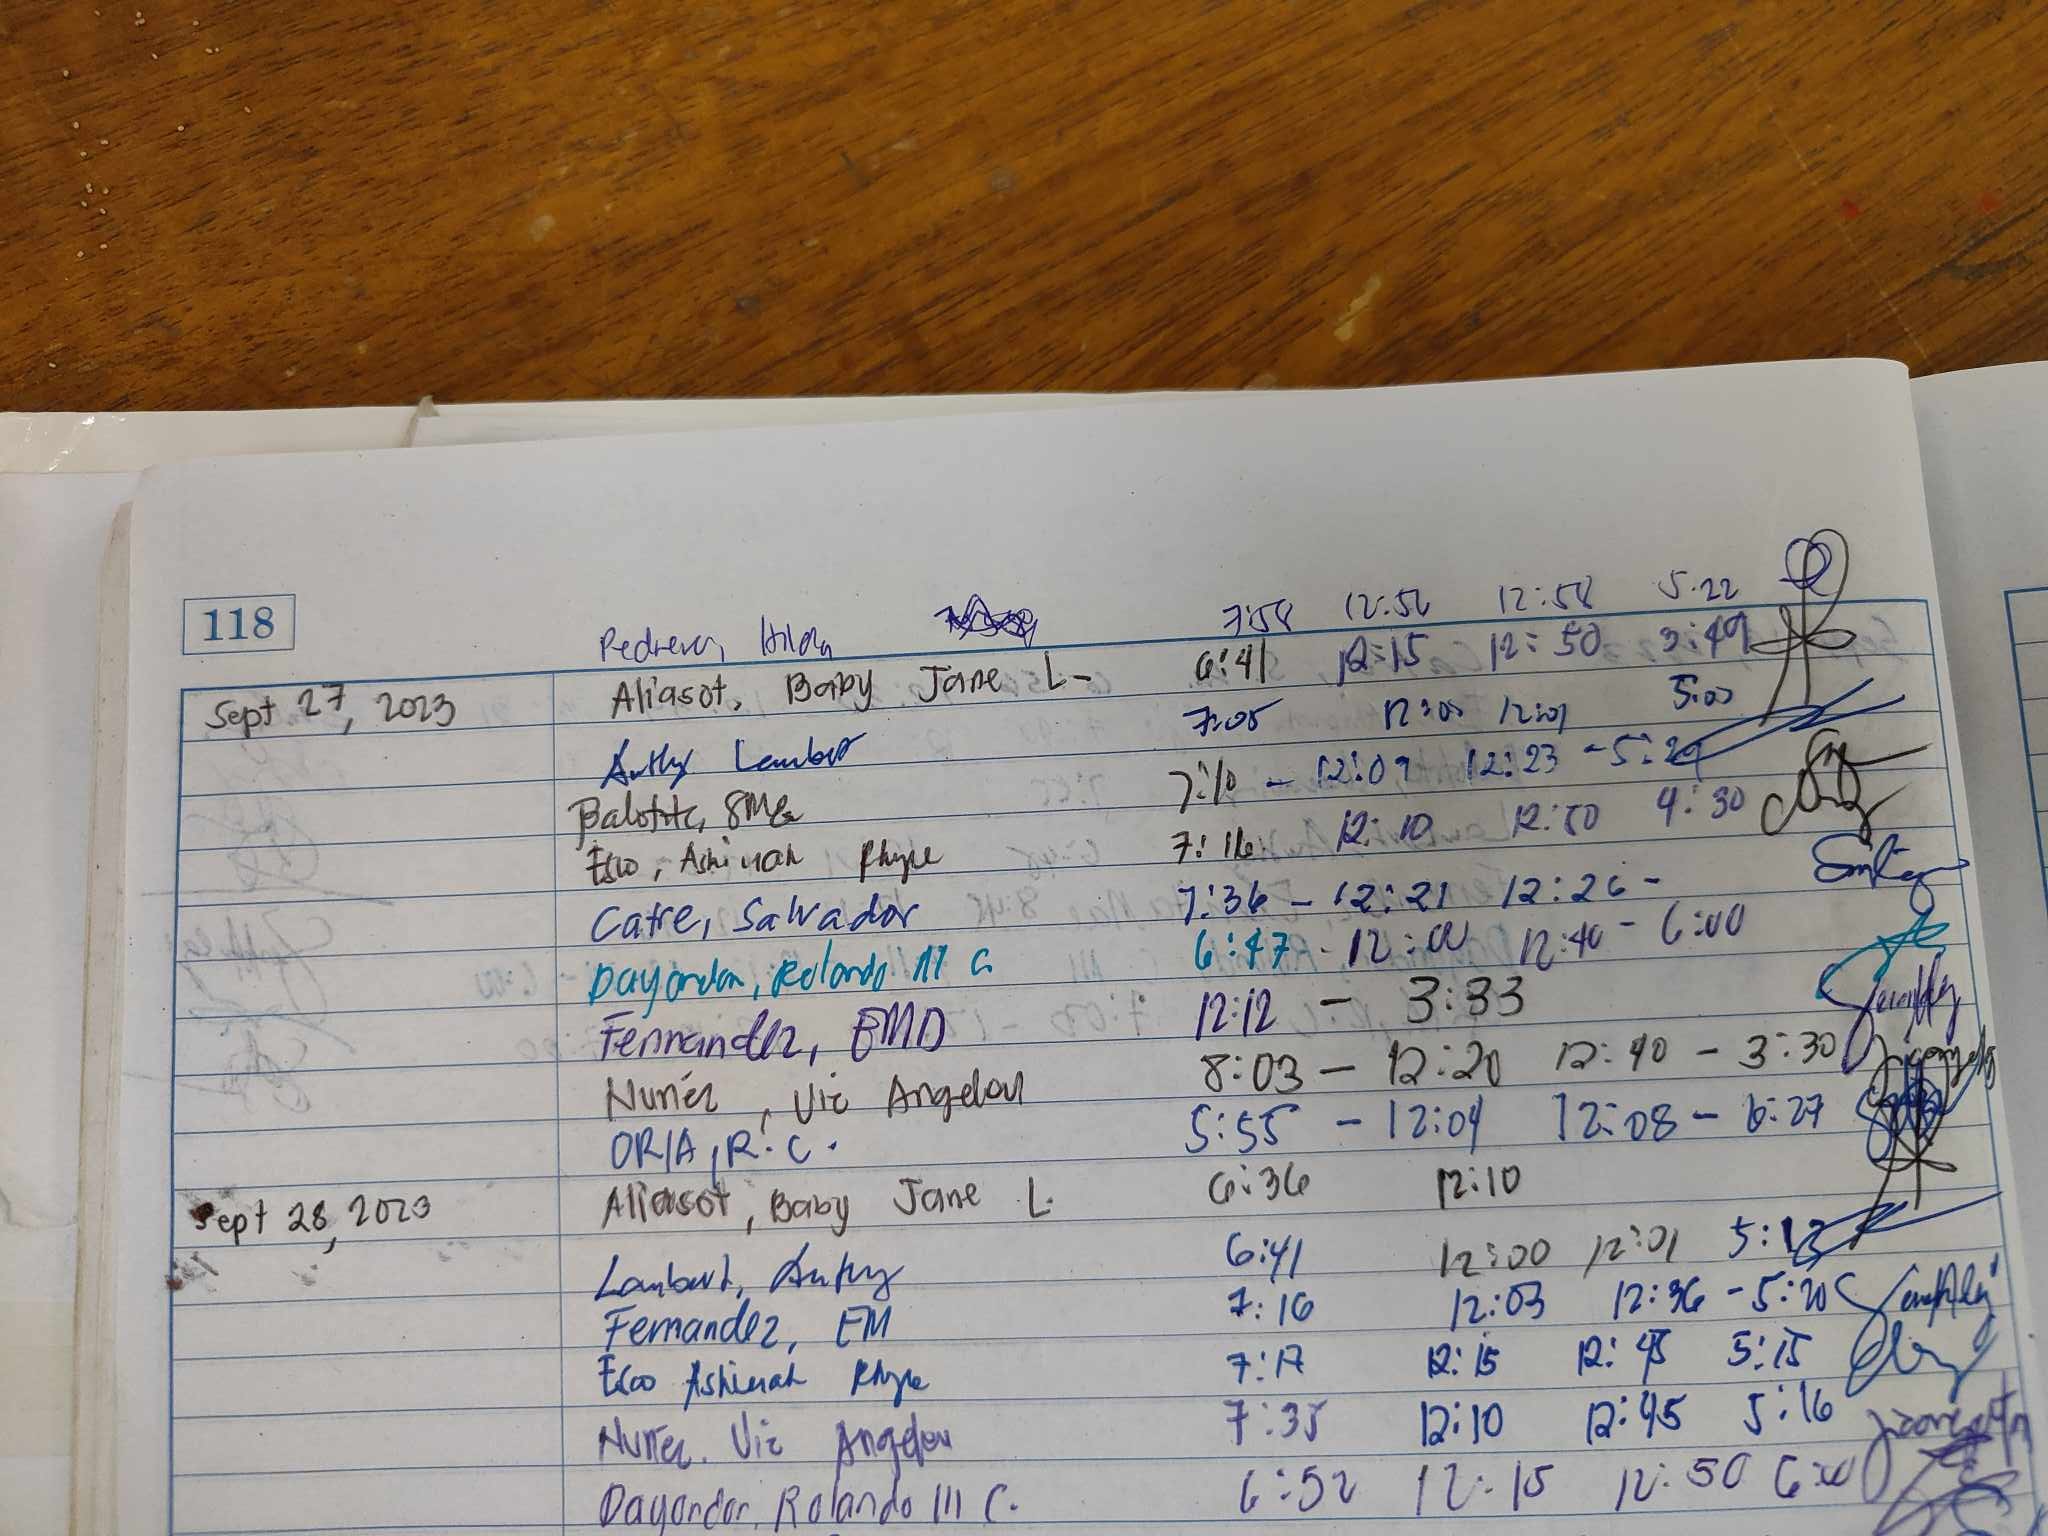 118
Hilda 7:58 12:56 12:58 5:22
Sept 27, 2023 Aliasot, Baby Jane L. 6:41 12:15 12:50 3:49
Lambert 7:05 12:00 12:01 5:00
7:10 - 12:09 12:23 - 5:29
Esco, Ashinah Rhyze 7:16 12:10 12:50 4:30
Catre, Salvador 7:36 - 12:21 12:26 -
Dayondon, Rolando III C 6:47 - 12:00 12:40 - 6:00
Fernandez, EMD 12:12 - 3:33
Nuñez, Vic Angelou 8:03 - 12:20 12:40 - 3:30
ORIA, R.C. 5:55 - 12:04 12:08 - 6:27
Sept 28, 2023 Aliasot, Baby Jane L. 6:36 12:10
Lambert, 6:41 12:00 12:01 5:12
Fernandez, EM 7:16 12:03 12:36 - 5:20
Esco Ashinah Rhyze 7:17 12:15 12:45 5:15
Nuñez. Vic Angelou 7:35 12:10 12:45 5:16
Dayondon, Rolando III C. 6:52 12:15 12:50 6:00